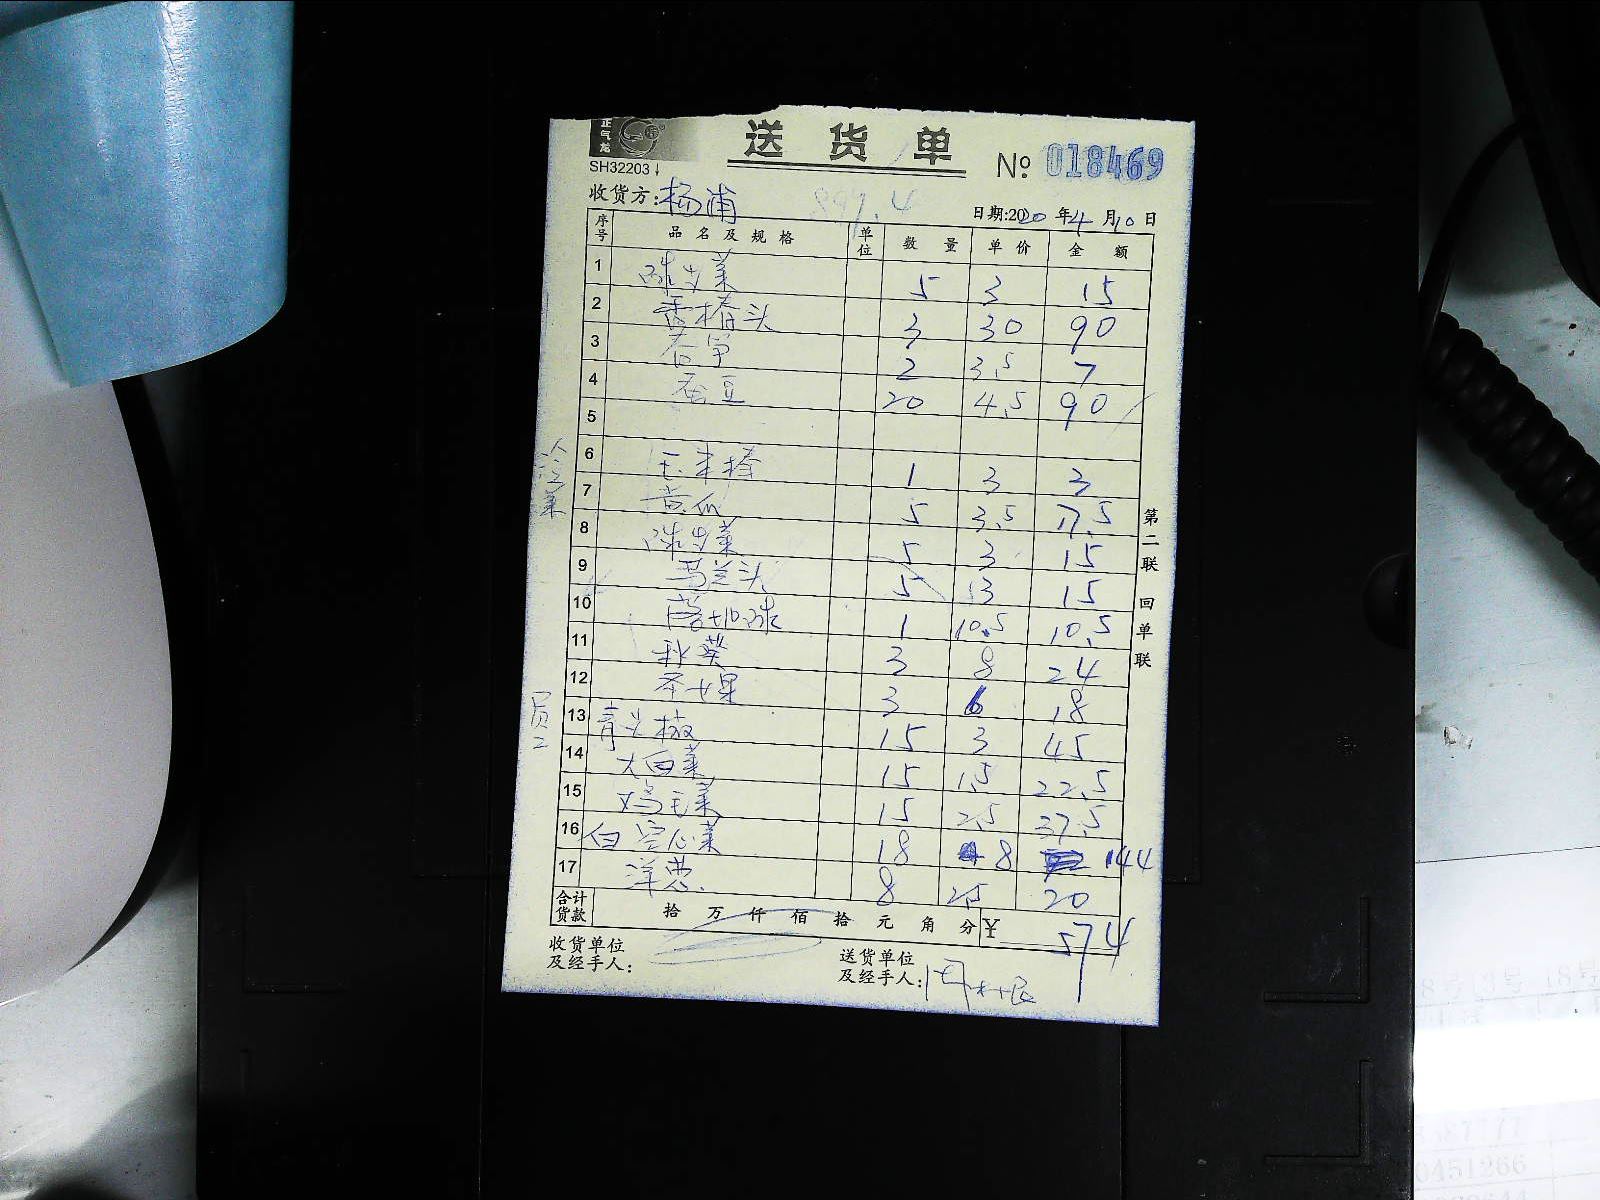 正气龙
送货单
SH32203
No 018469
收货方:杨浦
897.4
日期:2020年4月10日
序号 品名及规格 单位 数量 单价 金额
1 5 3 15
2 香椿头 3 30 90
3 春笋 2 3.5 7
4 蚕豆 20 4.5 90
5
冷菜
6 玉米棒 1 3 3
7 黄瓜 5 3.5 17.5
8 5 3 15
9 马兰头 5 3 15
10 1 10.5 10.5
11 秋葵 3 8 24
12 圣女果 3 6 18
员工
13 青尖椒 15 3 45
14 大白菜 15 1.5 22.5
15 鸡毛菜 15 2.5 37.5
16 白空心菜 18 8 144
17 洋葱 8 2.5 20
合计货款 拾万仟佰拾元角分 ¥ 574
收货单位及经手人:
送货单位及经手人:
第二联 回单联